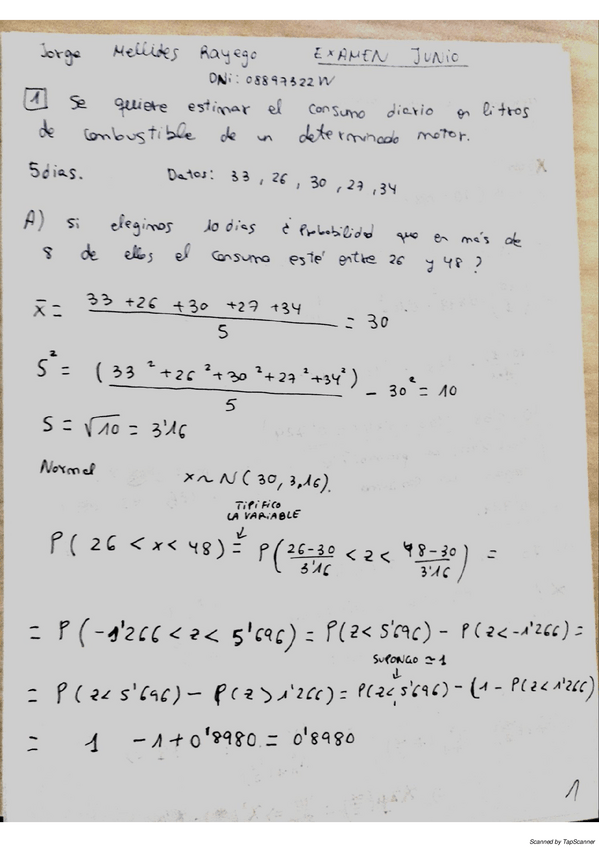 Jorge Mellides Rayego EXAMEN JUNIO
DNi: 08897322W
1 Se quiere estimar el consumo diario en litros
de combustible de un determinado motor.
5 dias. Datos: 33, 26, 30, 27, 34
A) Si elegimos 10 dias ¿ Probabilidad que en más de
8 de ellos el consumo esté entre 26 y 48?
x̄ = (33 + 26 + 30 + 27 + 34) / 5 = 30
S² = (33² + 26² + 30² + 27² + 34²) / 5 - 30² = 10
S = √10 = 3'16
Normal x ~ N(30, 3,16).
TIPIFICO
LA VARIABLE
P(26 < x < 48) = P((26-30)/3'16 < z < (48-30)/3'16) =
= P(-1'266 < z < 5'696) = P(z < 5'696) - P(z < -1'266) =
SUPONGO ≃ 1
= P(z < 5'696) - P(z > 1'266) = P(z < 5'696) - (1 - P(z < 1'266)
= 1 - 1 + 0'8980 = 0'8980
1
Scanned by TapScanner